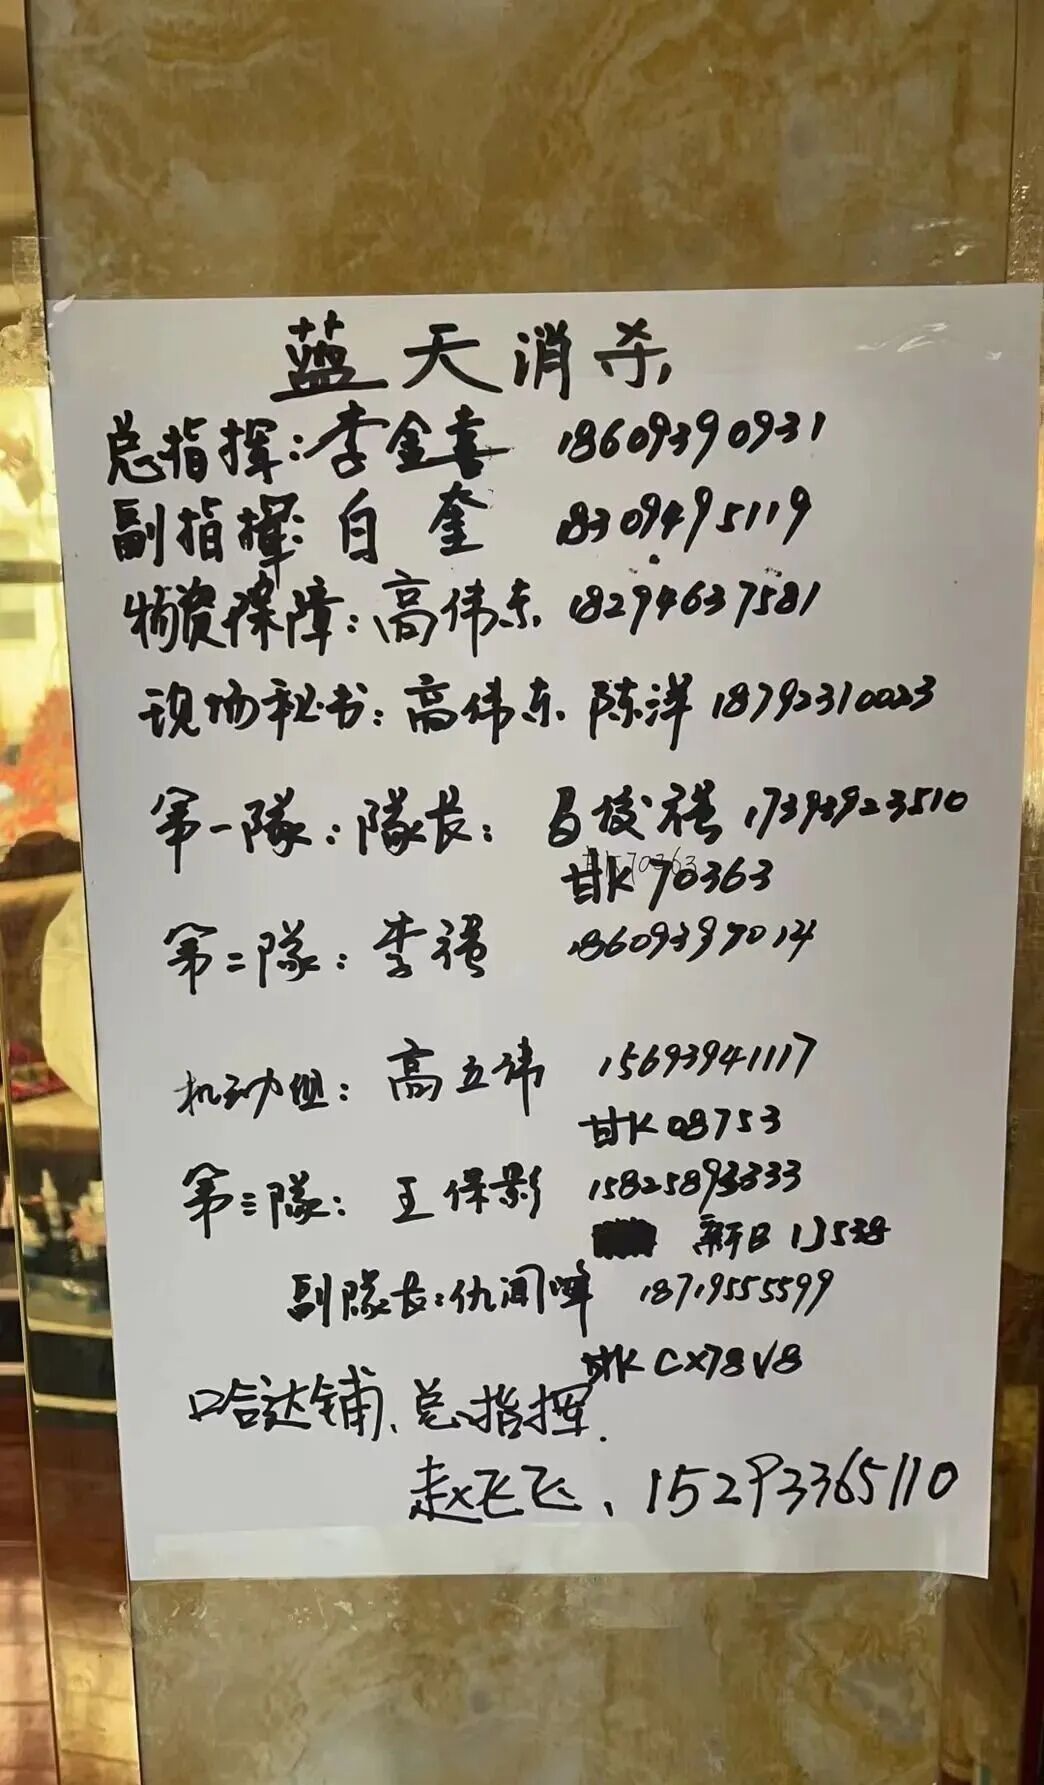 蓝天消杀
总指挥：李金喜 18609390931
副指挥：白奎 18309495119
物资保障：高伟东 18294637581
现场秘书：高伟东 陈洋 18792310023
第一隊：隊长： 俊祺 17393923510
甘K 70363
第二隊：李强 18609397014
机动组：高五祎 15693941117
甘K 08753
第三隊：王保影 15825893333
新B
副隊长：仇闻 18719555599
甘K CX78V8
哈达铺、总指挥.
赵飞飞、15293365110